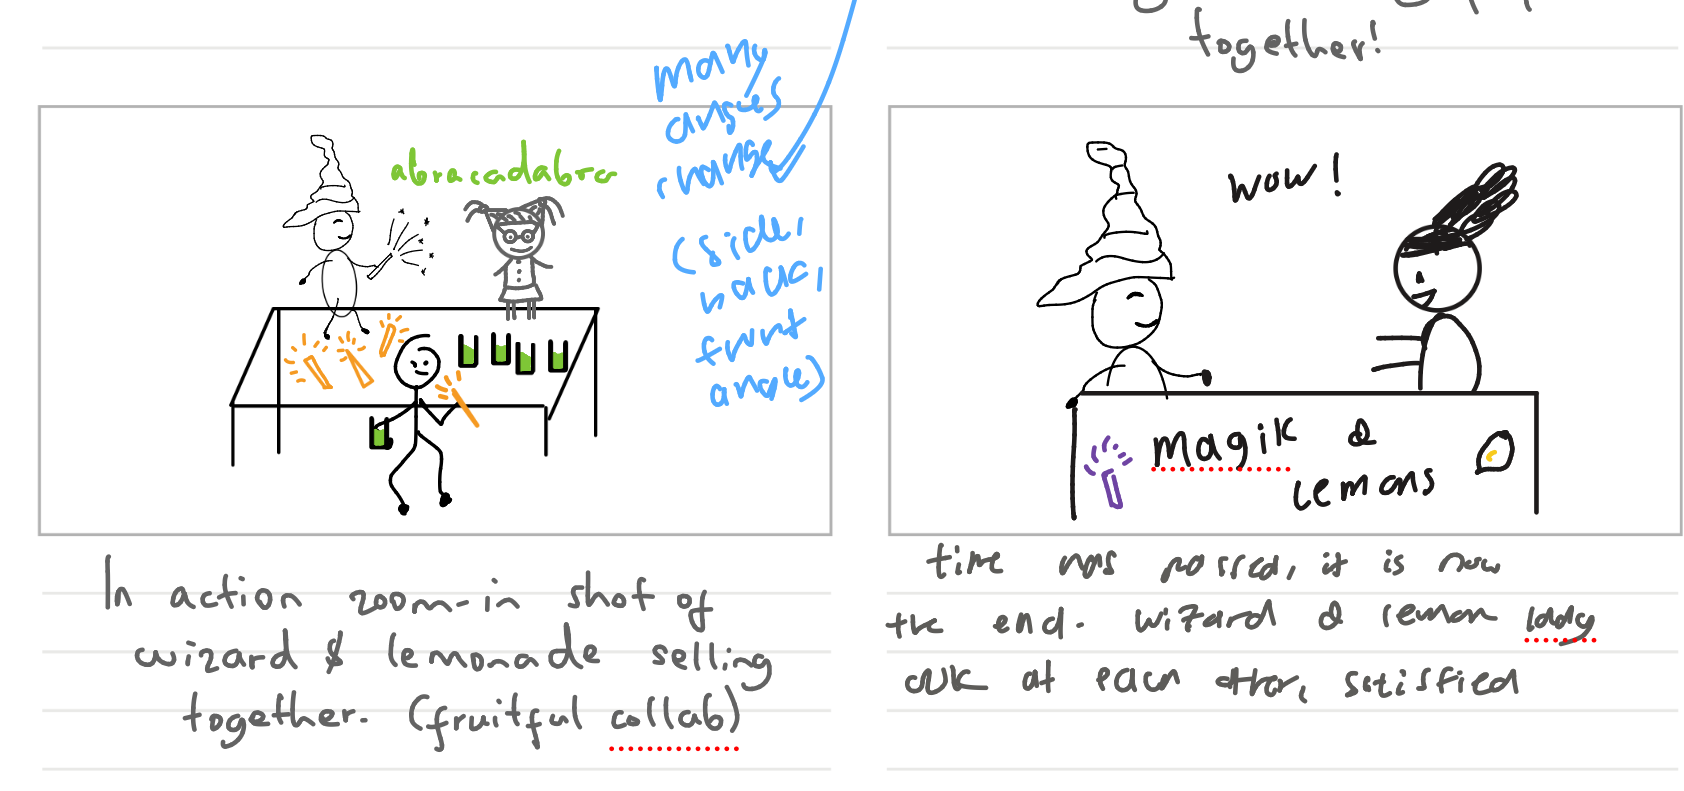 together!
many
angles
change
(side,
back,
front
angle)
abracadabra
In action zoom-in shot of
wizard & lemonade selling
together. (fruitful collab)
wow!
magik &
lemons
time has passed, it is now
the end. wizard & lemon lady
look at each other, satisfied